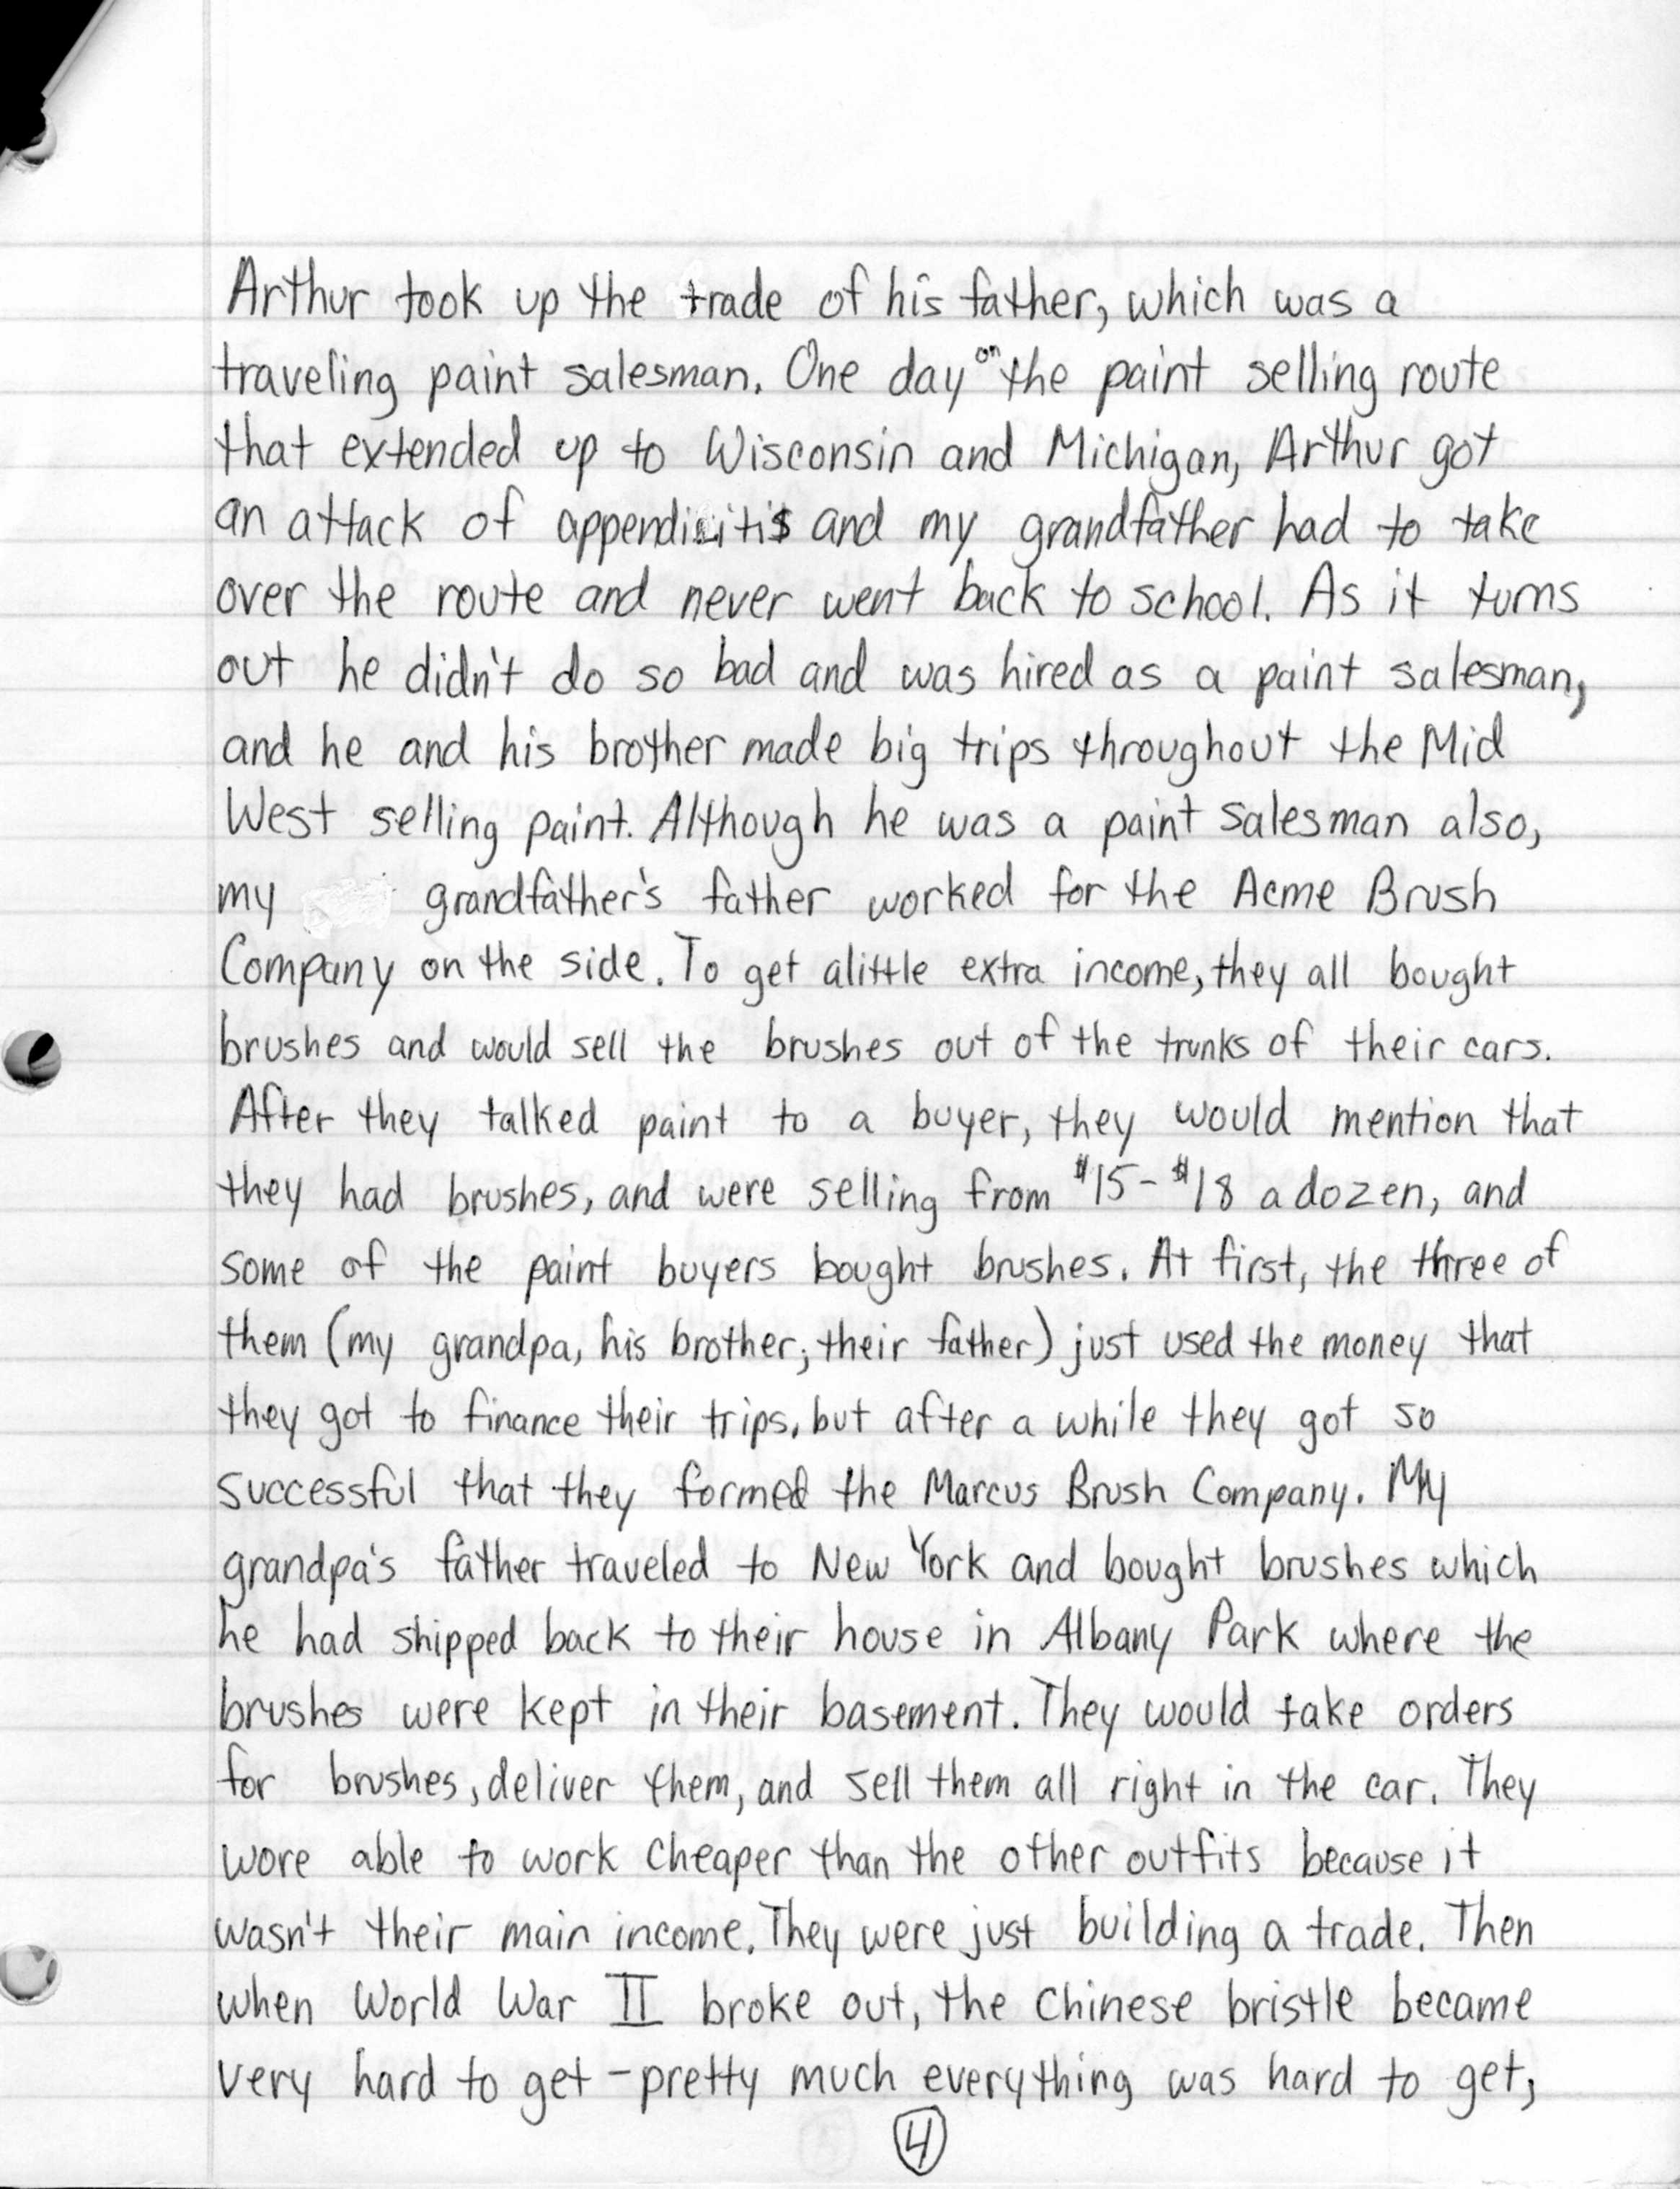 Arthur took up the trade of his father, which was a
traveling paint salesman. One day on the paint selling route
that extended up to Wisconsin and Michigan, Arthur got
an attack of appendicitis and my grandfather had to take
over the route and never went back to school. As it turns
out he didn't do so bad and was hired as a paint salesman,
and he and his brother made big trips throughout the Mid
West selling paint. Although he was a paint salesman also,
my grandfather's father worked for the Acme Brush
Company on the side. To get alittle extra income, they all bought
brushes and would sell the brushes out of the trunks of their cars.
After they talked paint to a buyer, they would mention that
they had brushes, and were selling from $15-$18 a dozen, and
some of the paint buyers bought brushes. At first, the three of
them (my grandpa, his brother; their father) just used the money that
they got to finance their trips, but after a while they got so
successful that they formed the Marcus Brush Company. My
grandpa's father traveled to New York and bought brushes which
he had shipped back to their house in Albany Park where the
brushes were kept in their basement. They would take orders
for brushes, deliver them, and sell them all right in the car. They
wore able to work cheaper than the other outfits because it
wasn't their main income. They were just building a trade. Then
when World War II broke out, the Chinese bristle became
very hard to get - pretty much everything was hard to get,
4